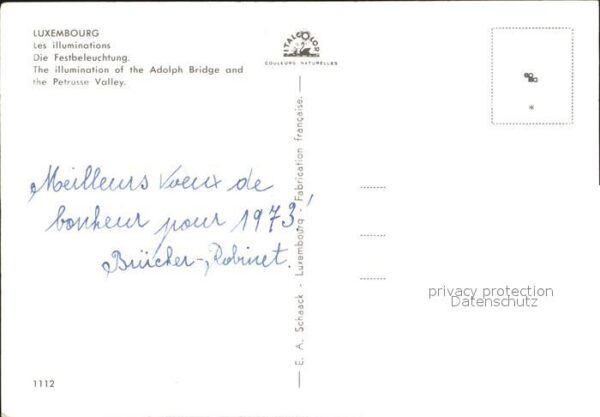 LUXEMBOURG
Les illuminations
Die Festbeleuchtung.
The illumination of the Adolph Bridge and
the Petrusse Valley.
ITALCOLOR
COULEURS NATURELLES
Meilleurs vœux de
bonheur pour 1973!
Brücher-Robinet.
E. A. Schaack - Luxembourg - Fabrication française.
privacy protection
Datenschutz
1112